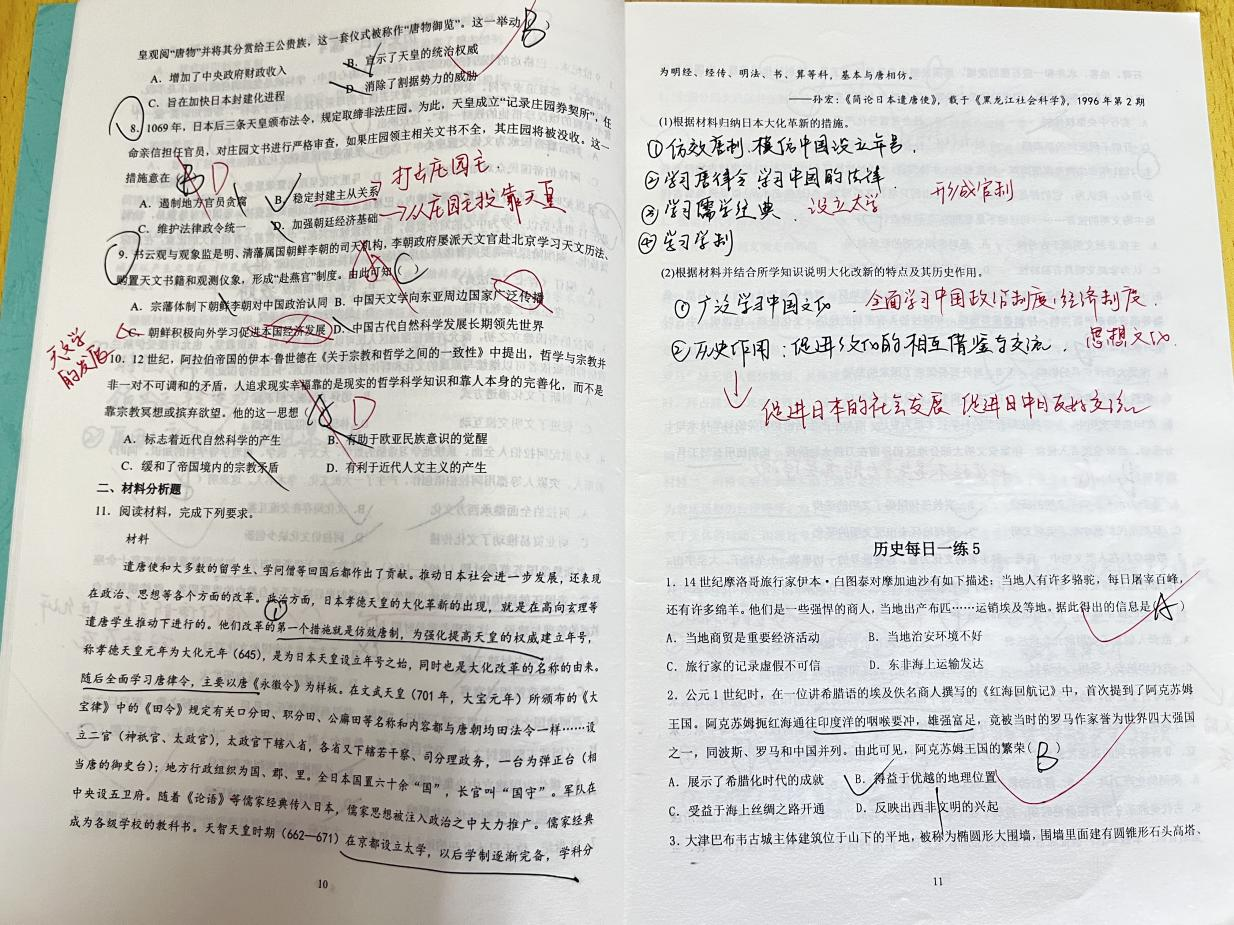 皇观阅“唐物”并将其分赏给王公贵族，这一套仪式被称作“唐物御览”。这一举动（B）
A．增加了中央政府财政收入 B．宣示了天皇的统治权威
C．旨在加快日本封建化进程 D．消除了割据势力的威胁
8．1069年，日本后三条天皇颁布法令，规定取缔非法庄园。为此，天皇成立“记录庄园券契所”，任
命亲信担任官员，对庄园文书进行严格审查，如果庄园领主相关文书不全，其庄园将被没收。这一
措施意在 B D
打击庄园主
A．遏制地方官员贪腐 B．稳定封建主从关系
C．维护法律政令统一 D．加强朝廷经济基础
→从庄园主投靠天皇
9．书云观与观象监是明、清藩属国朝鲜李朝的司天机构，李朝政府屡派天文官赴北京学习天文历法、
购置天文书籍和观测仪象，形成“赴燕宫”制度。由此可知（ ）A C
A．宗藩体制下朝鲜李朝对中国政治认同 B．中国天文学向东亚周边国家广泛传播
C．朝鲜积极向外学习促进本国经济发展 D．中国古代自然科学发展长期领先世界
天文学
的发展
10．12世纪，阿拉伯帝国的伊本·鲁世德在《关于宗教和哲学之间的一致性》中提出，哲学与宗教并
非一对不可调和的矛盾，人追求现实幸福靠的是现实的哲学科学知识和靠人本身的完善化，而不是
靠宗教冥想或摈弃欲望。他的这一思想（A）D
A．标志着近代自然科学的产生 B．有助于欧亚民族意识的觉醒
C．缓和了帝国境内的宗教矛盾 D．有利于近代人文主义的产生
二、材料分析题
11．阅读材料，完成下列要求。
材料
遣唐使和大多数的留学生、学问僧等回国后都作出了贡献。推动日本社会进一步发展，还表现
在政治、思想等各个方面的改革。政治方面，日本孝德天皇的大化革新的出现，就是在高向玄理等
①
遣唐学生推动下进行的。他们改革的第一个措施就是仿效唐制，为强化提高天皇的权威建立年号，
称孝德天皇元年为大化元年（645），是为日本天皇设立年号之始，同时也是大化改革的名称的由来。
随后全面学习唐律令，主要以唐《永徽令》为样板。在文武天皇（701年，大宝元年）所颁布的《大
宝律》中的《田令》规定有关口分田、职分田、公廨田等名称和内容都与唐朝均田法令一样……设
立二官（神祇官、太政官），太政官下辖八省，各省又下辖若干寮、司分理政务，一台为弹正台（相
当唐的御史台）；地方行政组织为国、郡、里，全日本国置六十余“国”，长官叫“国守”。军队在
中央设五卫府。随着《论语》等儒家经典传入日本，儒家思想被注入政治之中大力推广。儒家经典
成为各级学校的教科书。天智天皇时期（662—671）在京都设立太学，以后学制逐渐完备，学科分
10
为明经、经传、明法、书、算等科，基本与唐相仿。
——孙宏：《简论日本遣唐使》，载于《黑龙江社会科学》，1996年第2期
(1)根据材料归纳日本大化革新的措施。
①仿效唐制 模仿中国设立年号，
②学习唐律令 学习中国的法律
③学习儒学经典．设立太学 形成官制
④学习学制
(2)根据材料并结合所学知识说明大化改新的特点及其历史作用。
①广泛学习中国文化．全面学习中国政治制度，经济制度．
②历史作用：促进文化的相互借鉴与交流．思想文化．
促进日本的社会发展 促进日中友好交流
历史每日一练5
1．14世纪摩洛哥旅行家伊本·白图泰对摩加迪沙有如下描述：当地人有许多骆驼，每日屠宰百峰，
还有许多绵羊。他们是一些强悍的商人，当地出产布匹……运销埃及等地。据此得出的信息是（A）
A．当地商贸是重要经济活动 B．当地治安环境不好
C．旅行家的记录虚假不可信 D．东非海上运输发达
2．公元1世纪时，在一位讲希腊语的埃及佚名商人撰写的《红海回航记》中，首次提到了阿克苏姆
王国。阿克苏姆扼红海通往印度洋的咽喉要冲，雄强富足，竟被当时的罗马作家誉为世界四大强国
之一，同波斯、罗马和中国并列。由此可见，阿克苏姆王国的繁荣（B）
A．展示了希腊化时代的成就 B．得益于优越的地理位置
C．受益于海上丝绸之路开通 D．反映出西非文明的兴起
3．大津巴布韦古城主体建筑位于山下的平地，被称为椭圆形大围墙，围墙里面建有圆锥形石头高塔、
11